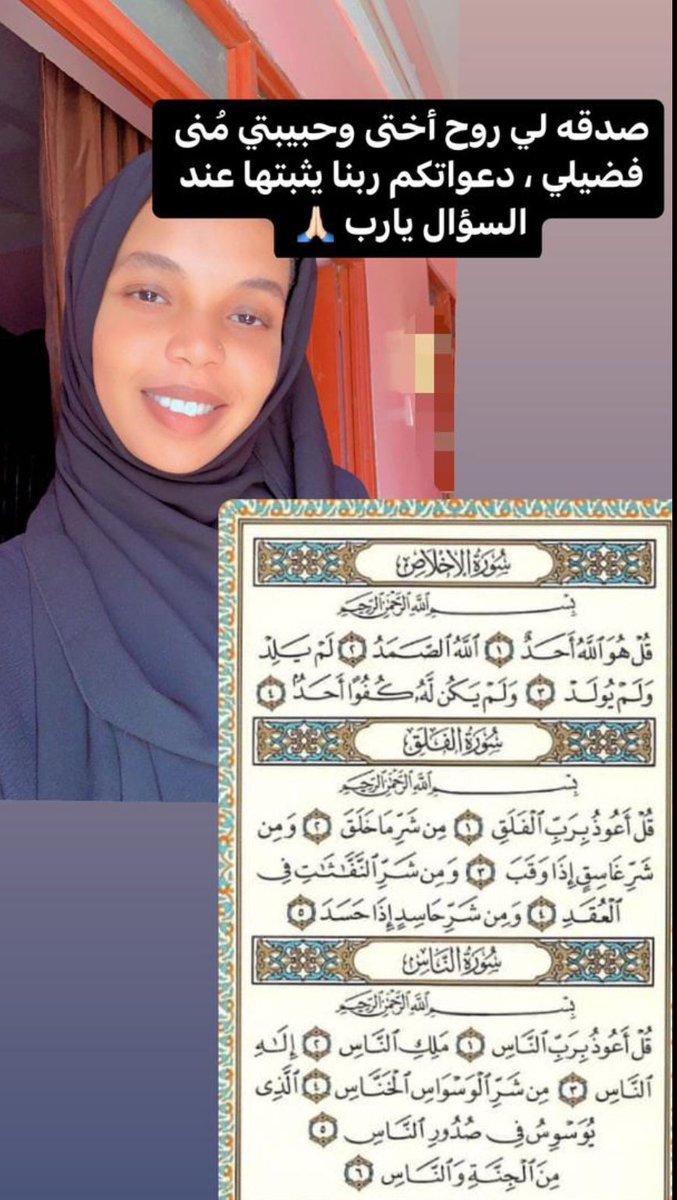 صدقه لي روح أختى وحبيبتي مُنى
فضيلي ، دعواتكم ربنا يثبتها عند
السؤال يارب 🙏🏻
سُورَةُ الإِخْلَاصِ
بِسْمِ اللَّهِ الرَّحْمَٰنِ الرَّحِيمِ
قُلْ هُوَ ٱللَّهُ أَحَدٌ ١ ٱللَّهُ ٱلصَّمَدُ ٢ لَمْ يَلِدْ
وَلَمْ يُولَدْ ٣ وَلَمْ يَكُن لَّهُۥ كُفُوًا أَحَدٌۢ ٤
سُورَةُ الفَلَقِ
بِسْمِ اللَّهِ الرَّحْمَٰنِ الرَّحِيمِ
قُلْ أَعُوذُ بِرَبِّ ٱلْفَلَقِ ١ مِن شَرِّ مَا خَلَقَ ٢ وَمِن
شَرِّ غَاسِقٍ إِذَا وَقَبَ ٣ وَمِن شَرِّ ٱلنَّفَّٰثَٰتِ فِى
ٱلْعُقَدِ ٤ وَمِن شَرِّ حَاسِدٍ إِذَا حَسَدَ ٥
سُورَةُ النَّاسِ
بِسْمِ اللَّهِ الرَّحْمَٰنِ الرَّحِيمِ
قُلْ أَعُوذُ بِرَبِّ ٱلنَّاسِ ١ مَلِكِ ٱلنَّاسِ ٢ إِلَٰهِ
ٱلنَّاسِ ٣ مِن شَرِّ ٱلْوَسْوَاسِ ٱلْخَنَّاسِ ٤ ٱلَّذِى
يُوَسْوِسُ فِى صُدُورِ ٱلنَّاسِ ٥
مِنَ ٱلْجِنَّةِ وَٱلنَّاسِ ٦